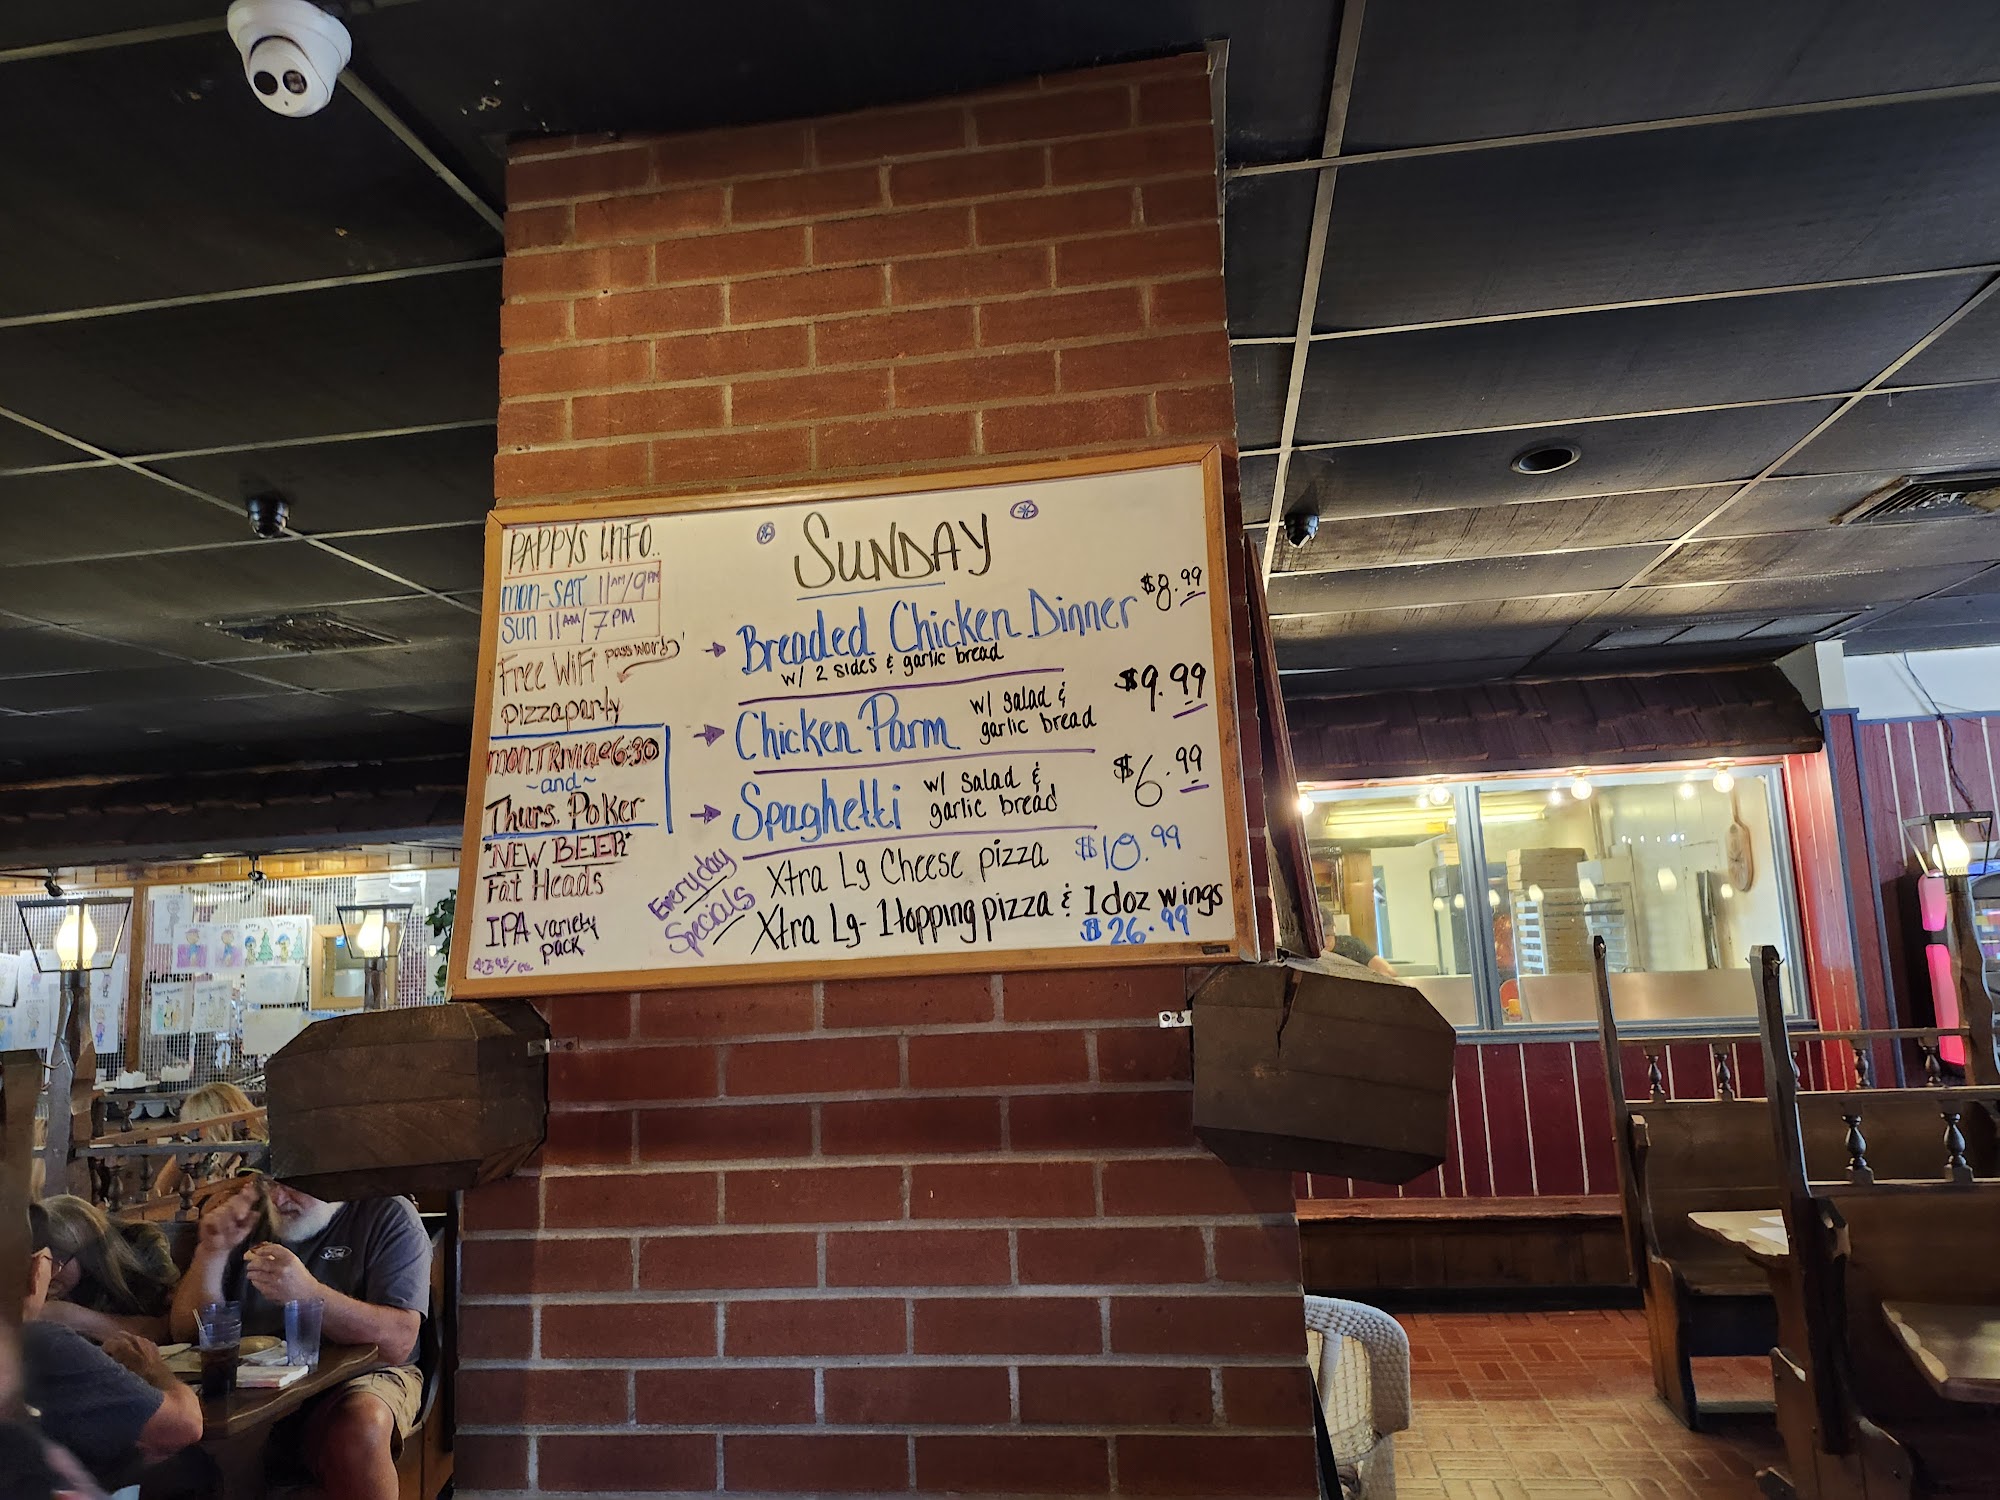 PAPPYS INFO..
MON-SAT 11AM/9PM
SUN 11AM/7PM
Free WiFi password
pizzaparty
MON.TRIVIA@6:30
~and~
Thurs. Poker
*NEW BEER*
Fat Heads
IPA variety
pack
SUNDAY
Breaded Chicken Dinner $8.99
w/ 2 sides & garlic bread
Chicken Parm w/ salad &
garlic bread $9.99
Spaghetti w/ salad &
garlic bread $6.99
Everyday
Specials
Xtra Lg Cheese pizza $10.99
Xtra Lg- 1 topping pizza & 1 doz wings
$26.99
Ford